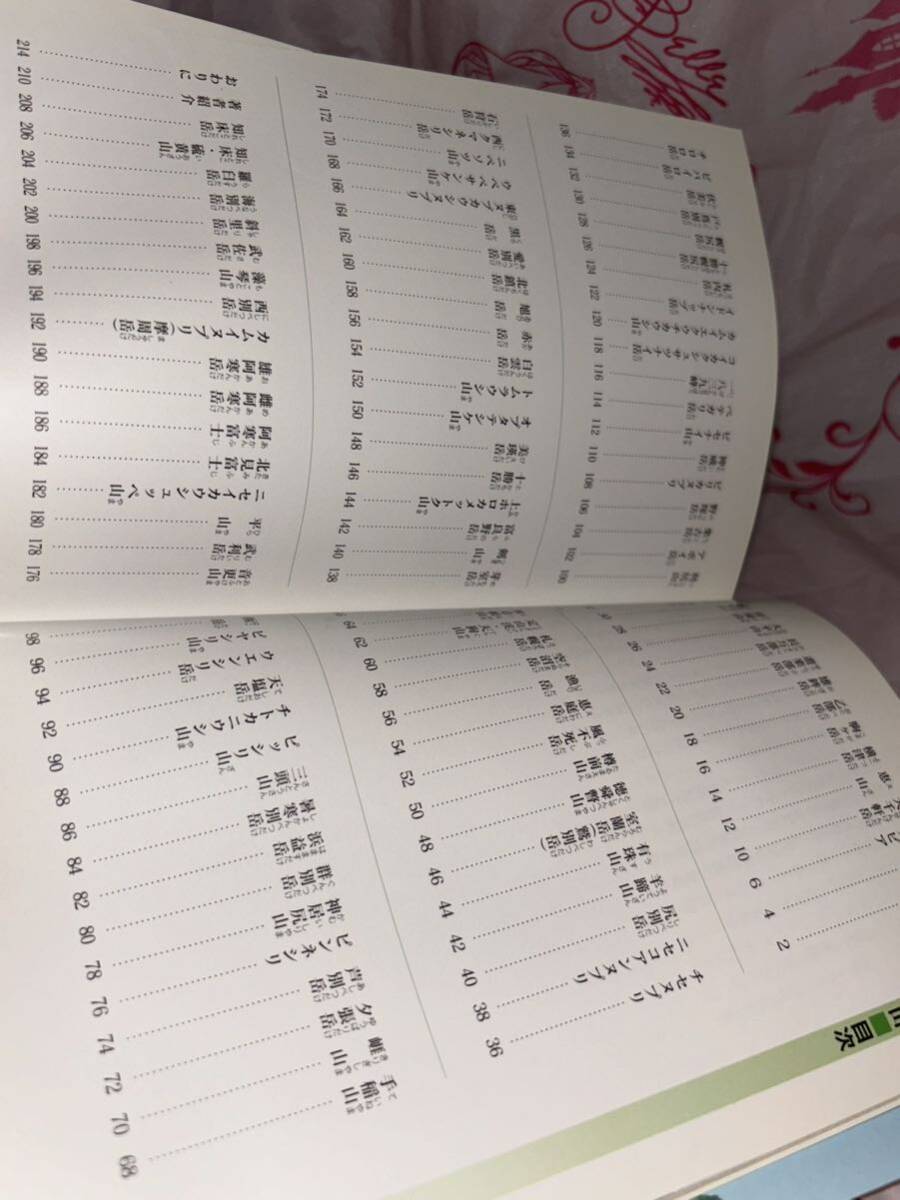 ■目次
2
4
6
軒岳 10
恵山 12
横津岳 14
駒ヶ岳 16
乙部岳 18
雄鉾岳 20
遊楽部岳 22
長万部岳 24
大平山 26
28
チセヌプリ 36
ニセコアンヌプリ 38
尻別岳 40
羊蹄山 42
有珠山 44
室蘭岳（鷲別岳） 46
徳舜瞥山 48
樽前山 50
風不死岳 52
恵庭岳 54
漁岳 56
空沼岳 58
札幌岳 60
62
64
手稲山 68
崕山 70
夕張岳 72
芦別岳 74
ピンネシリ 76
神居尻山 78
群別岳 80
浜益岳 82
暑寒別岳 84
三頭山 86
ピッシリ山 88
チトカニウシ山 90
天塩岳 92
ウエンシリ岳 94
ピヤシリ山 96
98
100
アポイ岳 102
楽古岳 104
野塚岳 106
ピリカヌプリ 108
神威岳 110
ピセナイ山 112
ペテガリ岳 114
一八三九峰 116
コイカクシュサツナイ岳 118
カムイエクウチカウシ山 120
イドンナップ岳 122
札内岳 124
十勝幌尻岳 126
幌尻岳 128
戸蔦別岳 130
伏美岳 132
ピパイロ岳 134
チロロ岳 136
芽室岳 138
剣山 140
富良野岳 142
上ホロカメットク山 144
十勝岳 146
美瑛岳 148
オプタテシケ山 150
トムラウシ山 152
白雲岳 154
赤岳 156
旭岳 158
北鎮岳 160
愛別岳 162
黒岳 164
東ヌプカウシヌプリ 166
ウペペサンケ山 168
ニペソツ山 170
西クマネシリ岳 172
石狩岳 174
音更山 176
武利岳 178
平山 180
ニセイカウシュッペ山 182
北見富士 184
阿寒富士 186
雌阿寒岳 188
雄阿寒岳 190
カムイヌプリ（摩周岳） 192
西別岳 194
藻琴山 196
武佐岳 198
斜里岳 200
海別岳 202
羅臼岳 204
知床・硫黄山 206
知床岳 208
著者紹介 210
おわりに 214